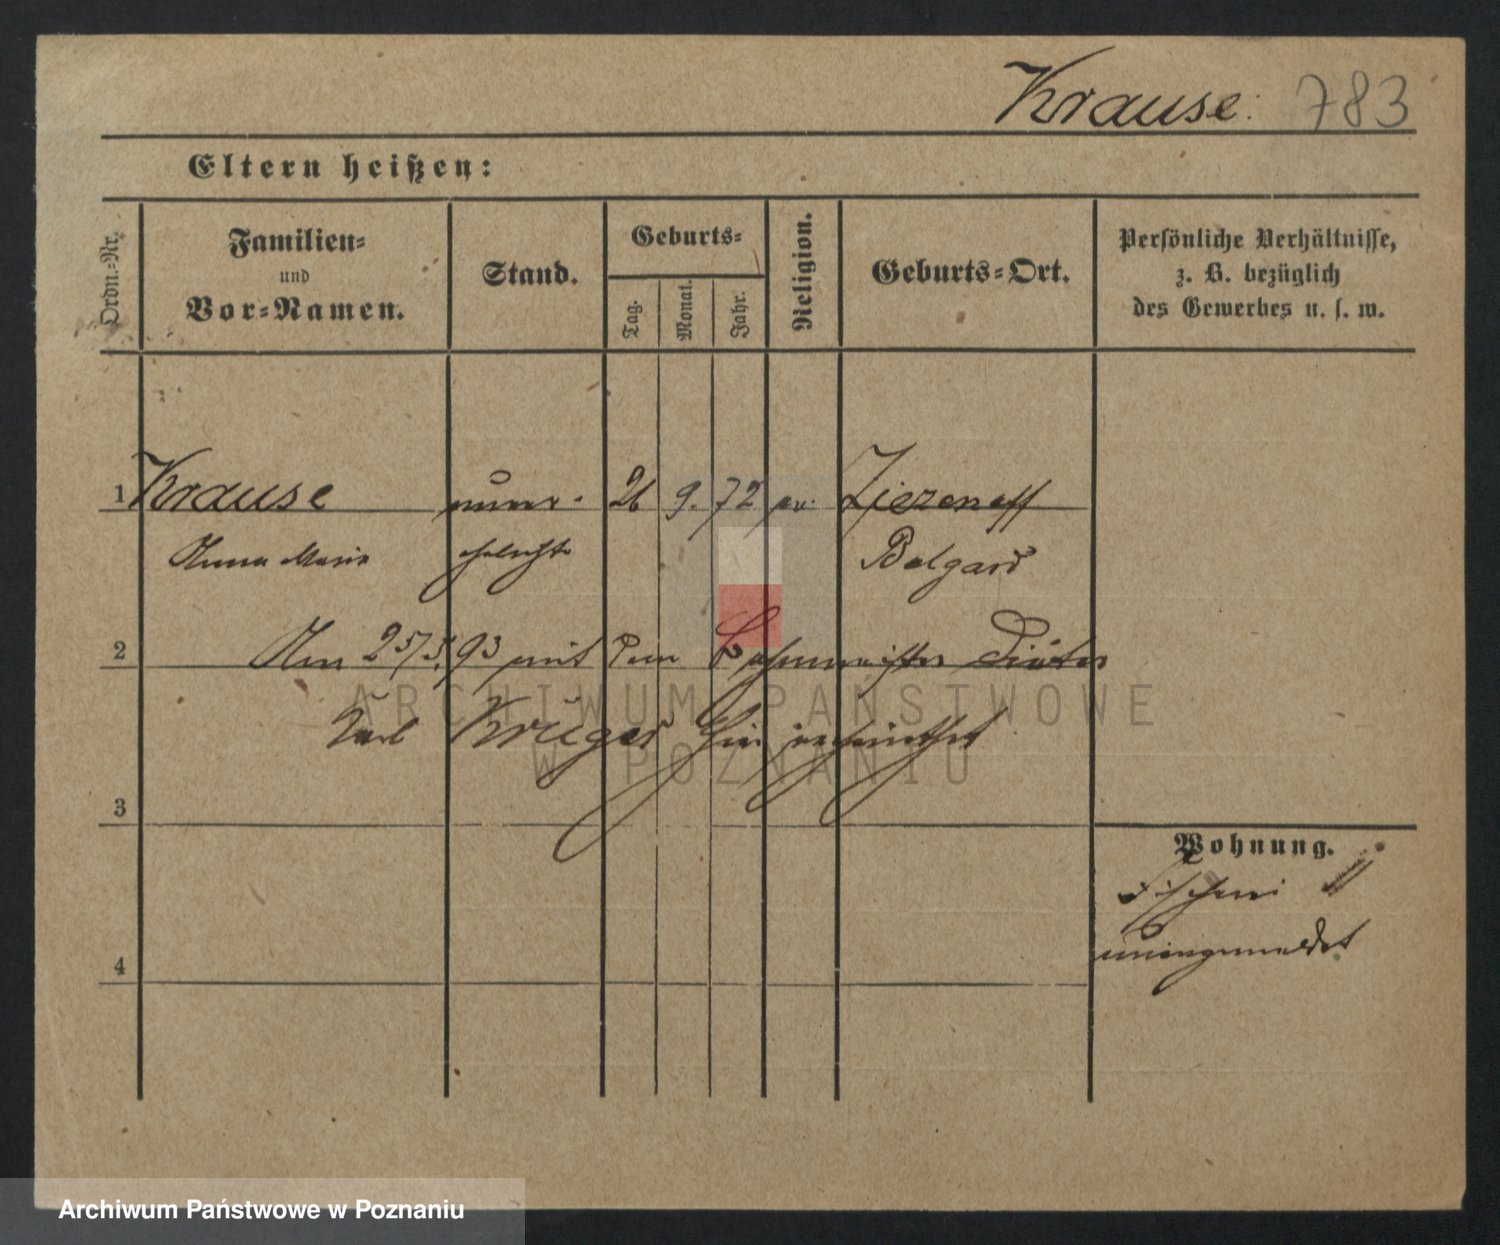 Krause. 783
Eltern heißen:
Ordn.-Nr.
Familien-
und
Vor-Namen.
Stand.
Geburts-
Tag.
Monat.
Jahr.
Religion.
Geburts-Ort.
Persönliche Verhältnisse,
z. B. bezüglich
des Gewerbes u. s. w.
1 Krause unver- 26 9. 72 ev. Ziezeneff
Anna Marie ehelichte Belgard
2 Am 25/5. 93 mit dem Bahnmeister Diätar
Karl Krüger hier verheirathet
ARCHIWUM PAŃSTWOWE
W POZNANIU
3
Wohnung.
Fischerei
4
Archiwum Państwowe w Poznaniu